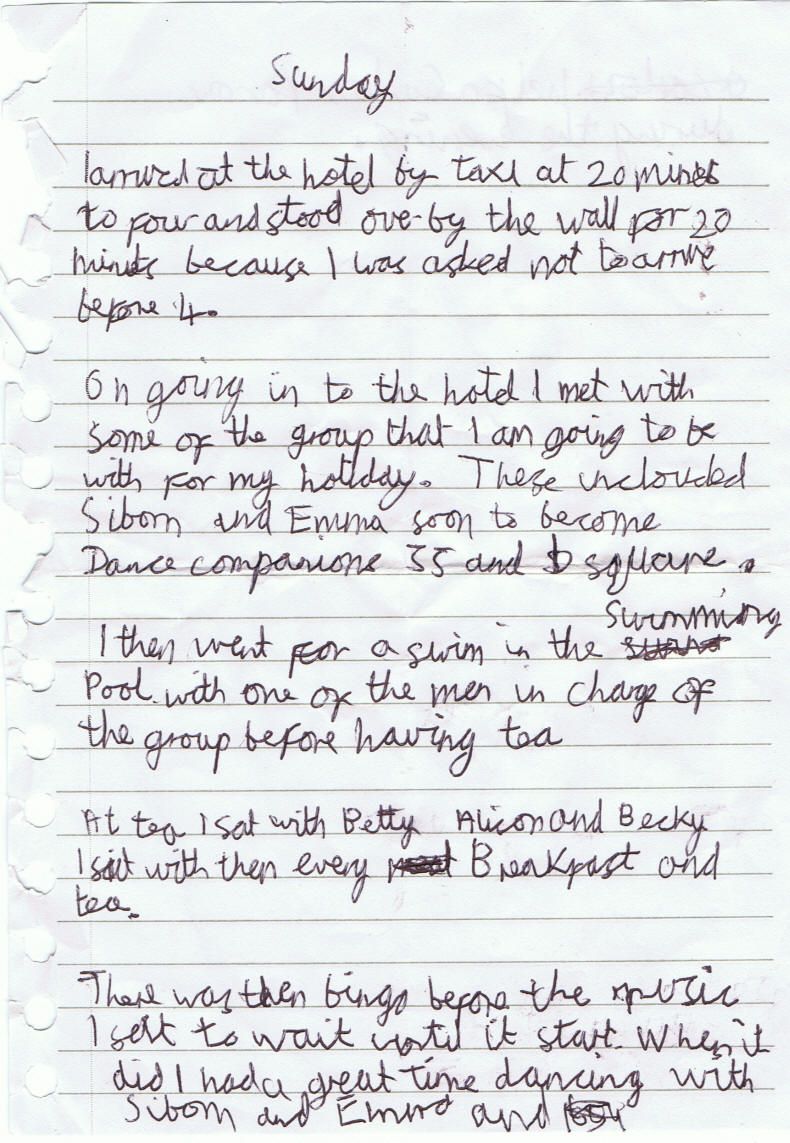 Sunday
I arrived at the hotel by taxi at 20 minets
to four and stood over by the wall for 20
minets because I was asked not to arrive
before 4.
On going in to the hotel I met with
some of the group that I am going to be
with for my holiday. These inclouded
Sibom and Emma soon to become
Dance companions 55 and square.
Swimming
I then went for a swim in the
Pool. with one of the men in charge of
the group before having tea
At tea I sat with Betty Alison and Becky
I sat with then every Breakfast and
tea.
There was then bingo before the music
I sett to wait until it start. When it
did I had a great time dancing with
Sibom and Emma and